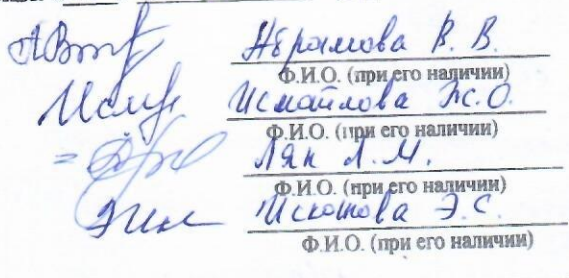 Абрамова В. В.
Ф.И.О. (при его наличии)
Исмаилова Ж.О.
Ф.И.О. (при его наличии)
Лян Л.М.
Ф.И.О. (при его наличии)
Э.С.
Ф.И.О. (при его наличии)